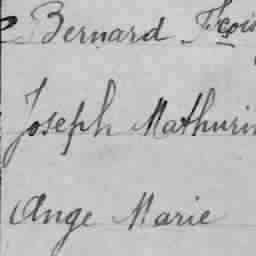 Bernard Fçois
Joseph Mathurin
Ange Marie